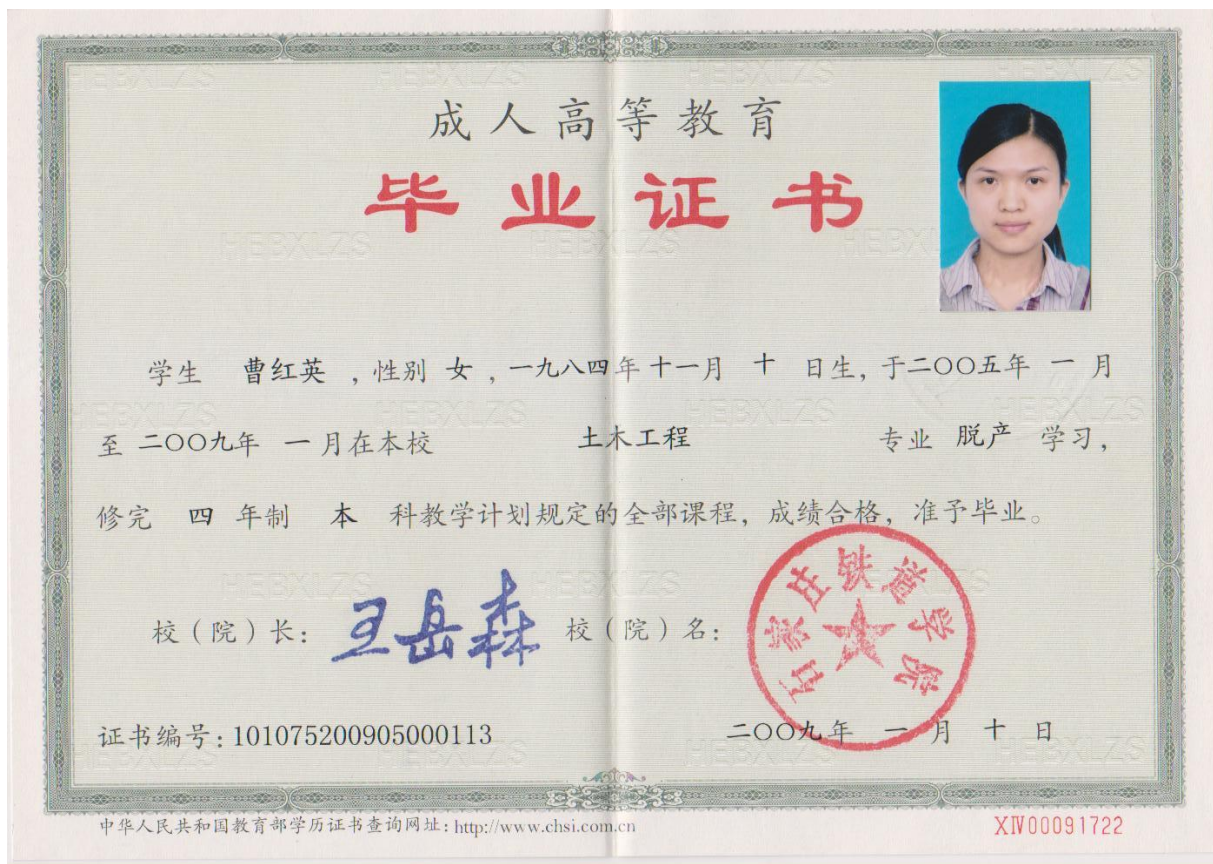 成人高等教育
毕业证书
学生 曹红英 ，性别 女 ，一九八四年十一月 十 日生，于二〇〇五年 一 月
至 二〇〇九年 一 月在本校 土木工程 专业 脱产 学习，
修完 四 年制 本 科教学计划规定的全部课程，成绩合格，准予毕业。
校（院）长： 王岳森 校（院）名：
石家庄铁道学院
证书编号：101075200905000113 二〇〇九年 一 月 十 日
中华人民共和国教育部学历证书查询网址：http://www.chsi.com.cn XⅣ00091722
HEBXLZS